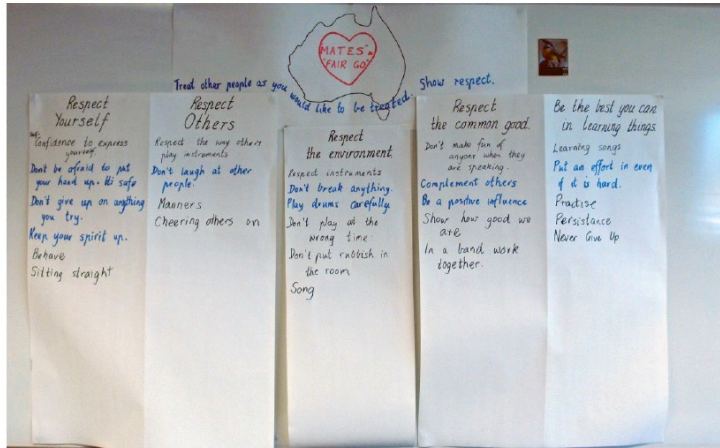 MATES"
"FAIR GO"
Treat other people as you would like to be treated. Show respect.
Respect
Yourself
Confidence to express
yourself.
Don't be afraid to put
your hand up. It's safe
Don't give up on anything
you try.
Keep your spirit up.
Behave
Sitting straight
Respect
Others
Respect the way others
play instruments
Don't laugh at other
people.
Manners
Cheering others on
Respect
the environment
Respect instruments
Don't break anything.
Play drums carefully
Don't play at the
wrong time.
Don't put rubbish in
the room
Song
Respect
the common good.
Don't make fun of
anyone when they
are speaking.
Complement others
Be a positive influence
Show how good we
are
In a band work
together.
Be the best you can
in learning things
Learning songs
Put an effort in even
if it is hard.
Practise
Persistance
Never Give Up